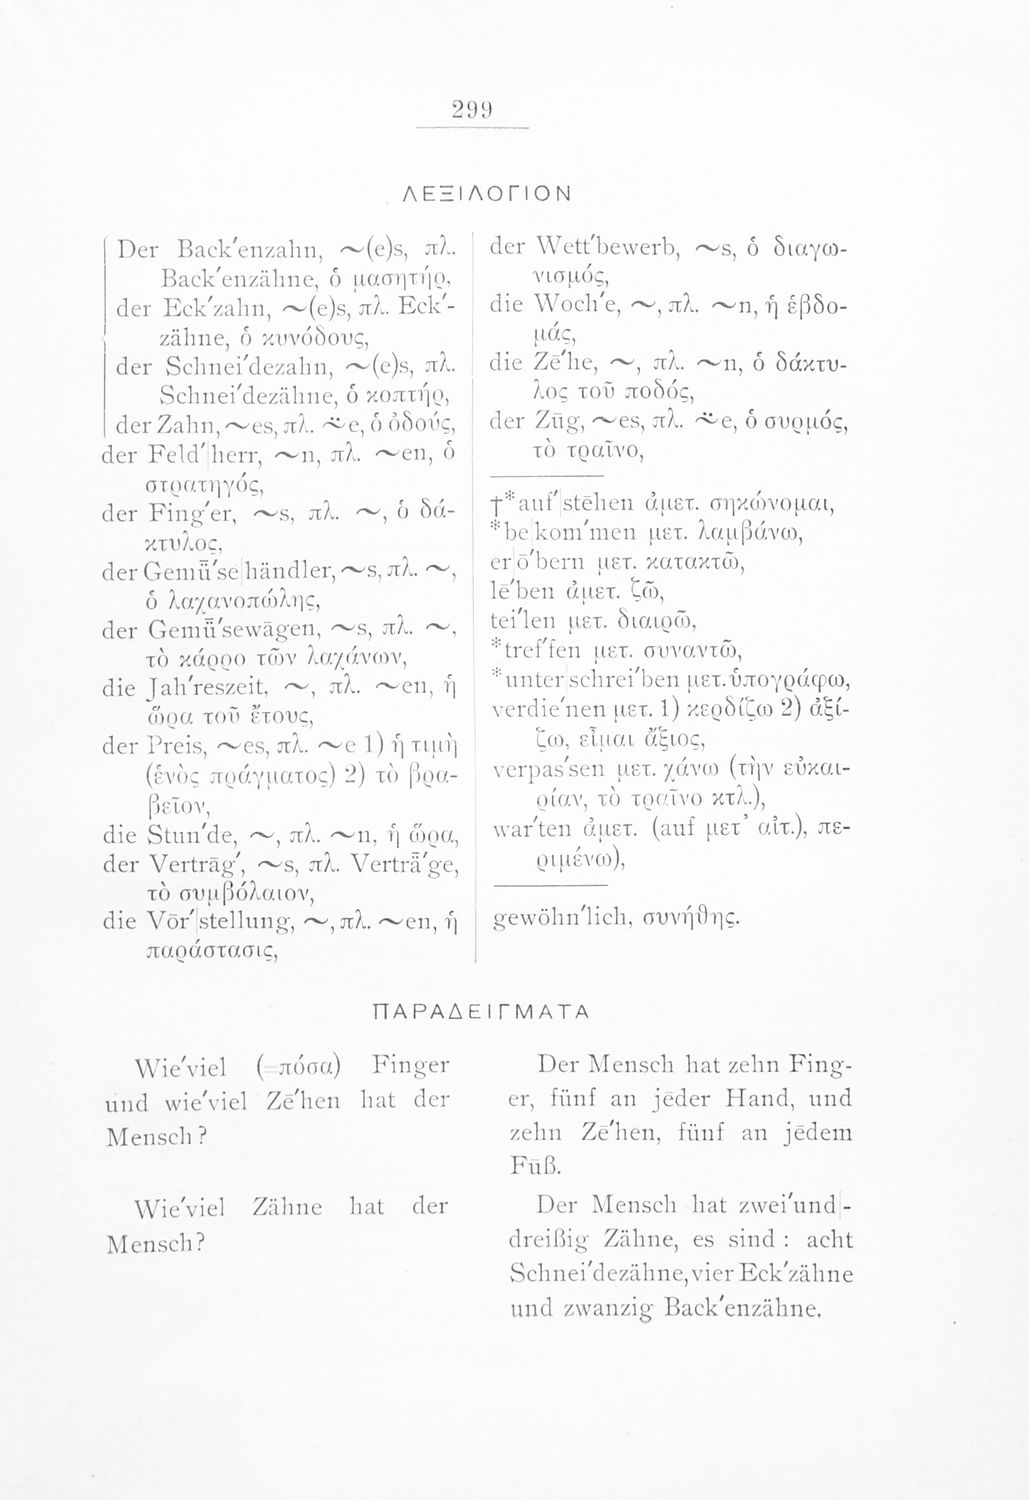 299
ΛΕΞΙΛΟΓΙΟΝ
Der Back'enzahn, ~(e)s, πλ.
Back'enzähne, ὁ μασητήρ,
der Eck'zahn, ~(e)s, πλ. Eck'-
zähne, ὁ κυνόδους,
der Schnei'dezahn, ~(e)s, πλ.
Schnei'dezähne, ὁ κοπτήρ,
der Zahn, ~es, πλ. ~̈e, ὁ ὀδούς,
der Feld'|herr, ~n, πλ. ~en, ὁ
στρατηγός,
der Fing'er, ~s, πλ. ~, ὁ δά-
κτυλος,
der Gemǖ'se|händler, ~s, πλ. ~,
ὁ λαχανοπώλης,
der Gemǖ'sewāgen, ~s, πλ. ~,
τὸ κάρρο τῶν λαχάνων,
die Jah'reszeit, ~, πλ. ~en, ἡ
ὥρα τοῦ ἔτους,
der Preis, ~es, πλ. ~e 1) ἡ τιμὴ
(ἑνὸς πράγματος) 2) τὸ βρα-
βεῖον,
die Stun'de, ~, πλ. ~n, ἡ ὥρα,
der Verträg', ~s, πλ. Verträ'ge,
τὸ συμβόλαιον,
die Vōr'|stellung, ~, πλ. ~en, ἡ
παράστασις,
der Wett'bewerb, ~s, ὁ διαγω-
νισμός,
die Woch'e, ~, πλ. ~n, ἡ ἑβδο-
μάς,
die Zē'he, ~, πλ. ~n, ὁ δάκτυ-
λος τοῦ ποδός,
der Zūg, ~es, πλ. ~̈e, ὁ συρμός,
τὸ τραῖνο,
†*auf'|stēhen ἀμετ. σηκώνομαι,
*be|kom'men μετ. λαμβάνω,
er|ō'bern μετ. κατακτῶ,
lē'ben ἀμετ. ζῶ,
tei'len μετ. διαιρῶ,
*tref'fen μετ. συναντῶ,
*unter|schrei'ben μετ. ὑπογράφω,
verdie'nen μετ. 1) κερδίζω 2) ἀξί-
ζω, εἶμαι ἄξιος,
verpas'sen μετ. χάνω (τὴν εὐκαι-
ρίαν, τὸ τραῖνο κτλ.),
war'ten ἀμετ. (auf μετ' αἰτ.), πε-
ριμένω),
gewöhn'lich, συνήθης.
ΠΑΡΑΔΕΙΓΜΑΤΑ
Wie'viel (=πόσα) Finger
und wie'viel Zē'hen hat der
Mensch?
Wie'viel Zähne hat der
Mensch?
Der Mensch hat zehn Fing-
er, fünf an jēder Hand, und
zehn Zē'hen, fünf an jēdem
Fūß.
Der Mensch hat zwei'und|-
dreißig Zähne, es sind : acht
Schnei'dezähne, vier Eck'zähne
und zwanzig Back'enzähne.